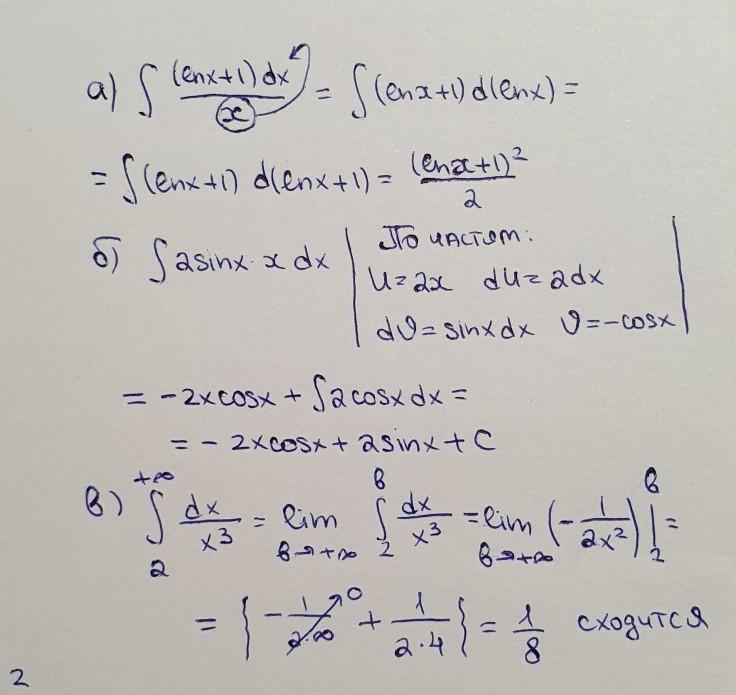 а) ∫ (lnx+1)dx / x = ∫(lnx+1)d(lnx) =
= ∫(lnx+1) d(lnx+1) = (lnx+1)² / 2
б) ∫2sinx·x dx | По частям:
u=2x du=2dx
dv=sinxdx v=-cosx |
= -2xcosx + ∫2cosxdx =
= - 2xcosx + 2sinx + C
в) ∫₂^{+∞} dx/x³ = lim_{в→+∞} ∫₂^в dx/x³ = lim_{в→+∞} (-1/2x²)|₂^в =
= {-1/2·∞ →0 + 1/2·4} = 1/8 сходится
2